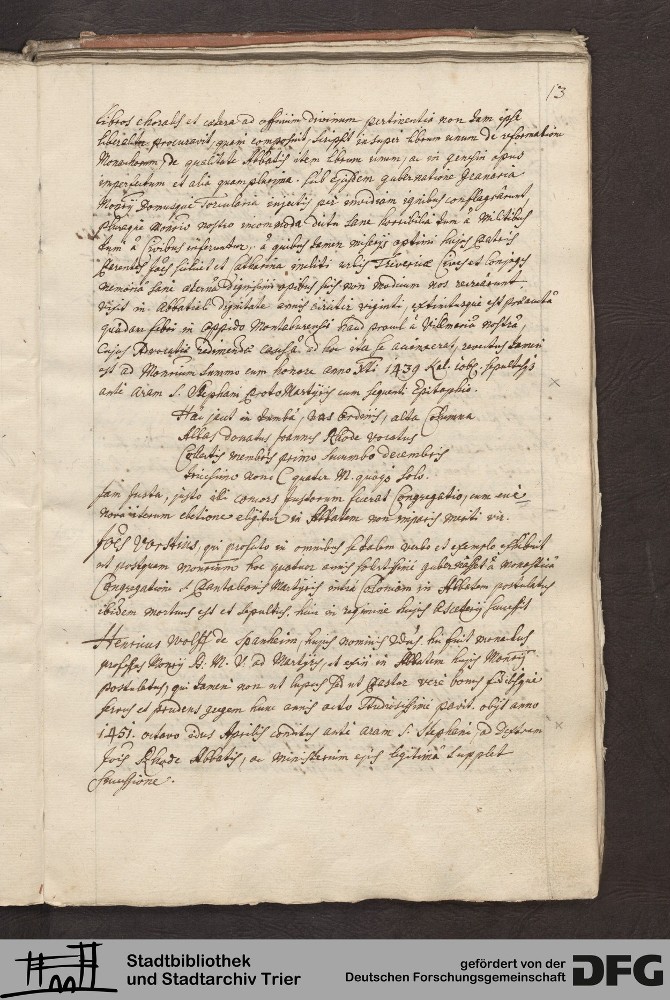 13
libros chorales et caetera ad officium divinum pertinentia non tam ipse
liberaliter procuravit, quam composuit, scripsit insuper librum unum de reformatione
Monachorum de qualitate Abbatis item librum unum, ac in genesin opus
imperfectum et alia quamplurima. sub ejusdem gubernatione granaria
Monrij Domusque Torcularia injectis per invidiam ignibus conflagrârunt,
pluraque Monrio nostro incommoda dictu sane horribilia tum à Militibus
tum à Civibus inferuntur, à quibus tamen miserijs optimi hujus Patris
Parentes Joes scilicet et Catharina incliti urbis Trevericae Cives et Conjuges
memoriâ sanè aeternâ dignissimi opibus suis non modicum nos recrearunt.
Vixit in Abbatiali dignitate annis circiter viginti, extinctusque est per acutâ
quâdam febri in oppido Montaburensi haud procul à Villmaria nostra,
cujus Advocatiae redimendae causâ ad hoc iter se accinxerat, revectus tamen
est ad Monrium summo cum honore anno Xti 1439 Kal. Xbr. sepultusque
ante aram S. Stephani ProtoMartyris cum sequenti Epitaphio.
Hac jacet in tumba, vas ordinis, alta Columna
Abbas donatus Joannes Rhode vocatus
Collectis membris primo succumbo decembris
tricesimo nono C quater M. quoque solo.
Iam juxta, justo illi concors fratrum fuerat Congregatio, cum
eligitur in Abbatem non imparis meriti vir.
Joes Vorstius, qui profecto in omnibus se talem verbo et exemplo exhibuit
ut postquam Monrium hoc quatuor annis solertissimè gubernâsset à Monastica
Congregatione S. Pantaleonis Martyris intra Coloniam in Abbatem postulatus
ibidem mortuus est et sepultus. huic in regimine hujus Asceterij successit
Henricus Wolff de Spanheim, hujus nominis 2dus, hic fuit monachus
professus Monrij B. M. V. ad Martyres, et exin in Abbatem hujus Monrij
postulatus, qui tamen non ut lupus sed ut Pastor verè bonus fidelisque
servus et prudens gregem hunc annis octo studiosissimè pavit. obijt anno
1451. octavo idus Aprilis conditus ante aram S. Stephani ad dextram
Jois Rhode Abbatis, ac ministerium ejus legitimâ supplet
successione.
Stadtbibliothek
und Stadtarchiv Trier
gefördert von der
Deutschen Forschungsgemeinschaft
DFG